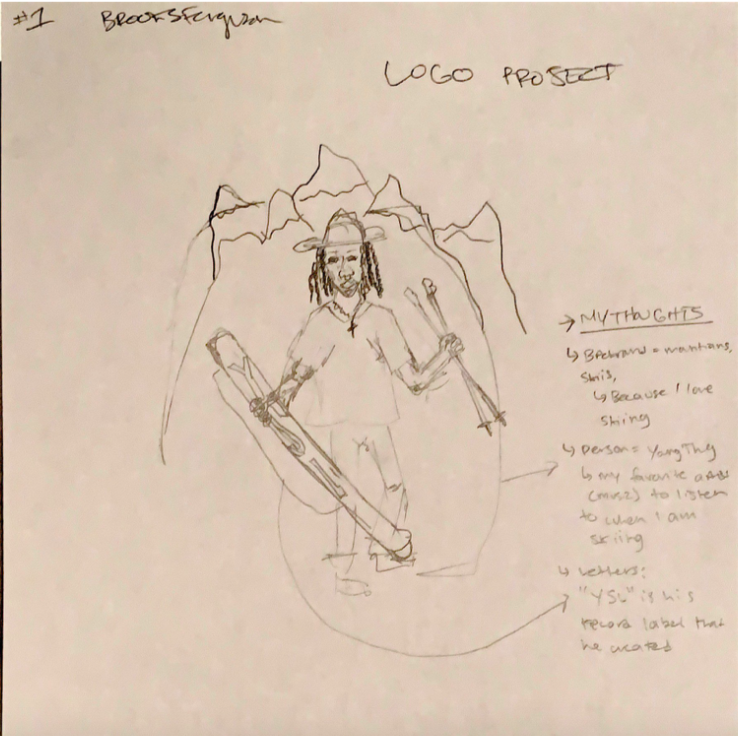 #1 Brooks Ferguson
LOGO PROJECT
→ MY THOUGHTS
↳ Background = mountains,
skis,
↳ Because I love
skiing
↳ person = Young Thug
↳ my favorite artist
(music) to listen
to when I am
skiing
↳ Letters:
"YSL" is his
record label that
he created
YSL